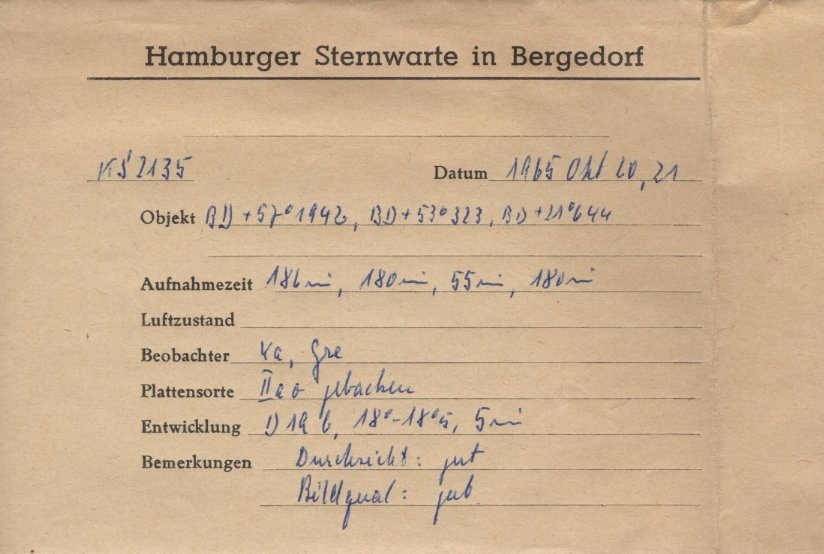 Hamburger Sternwarte in Bergedorf
KS 2135 Datum 1965 Okt 20,21
Objekt BD +57°1942, BD +53°323, BD +21°644
Aufnahmezeit 186 min, 180 min, 55 min, 180 min
Luftzustand
Beobachter Ka, Gre
Plattensorte IIao gebacken
Entwicklung D19b, 18°-18°5, 5 min
Bemerkungen Durchsicht: gut
Bildqual: